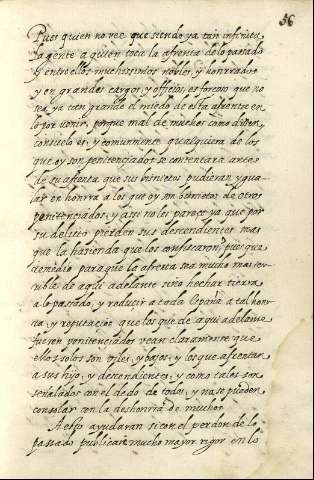 56
Pues quien no vee que siendo ya tan infinita
la gente a quien toca la afrenta de lo passado
y entre ellos muchissimos nobles, y honrrados
y en grandes cargos, y officios, es forçoso que no
sea ya tan grande el miedo de esta afrenta en
lo por venir, porque mal de muchos como dizen
consuelo es, y comunmente qualquiera de los
que oy son penitenciados se contentara antes
de su afrenta que sus bisnietos pudieran ygua-
lar en honrra a los que oy son bisnietos de otros
penitenciados, y assi no les pareçe ya que por
su delicto pierden sus descendientes mas
que la hazienda que les confiscaron, pues que
remedio para que la afrenta sea mucho mas te-
rrible de aqui adelante sino hechar tierra
a lo passado, y reducir a toda España a tal honr-
ra, y reputacion que los que de aqui adelante
fueren penitenciados vean claramente que
ellos solos son viles, y baxos, y los que afrentan
a sus hijos, y descendientes, y como tales son
señalados con el dedo de todos, y no se pueden
consolar con la deshonrra de muchos
A esto ayudaran si con el perdon de lo
passado publicase mucho mayor rigor en lo